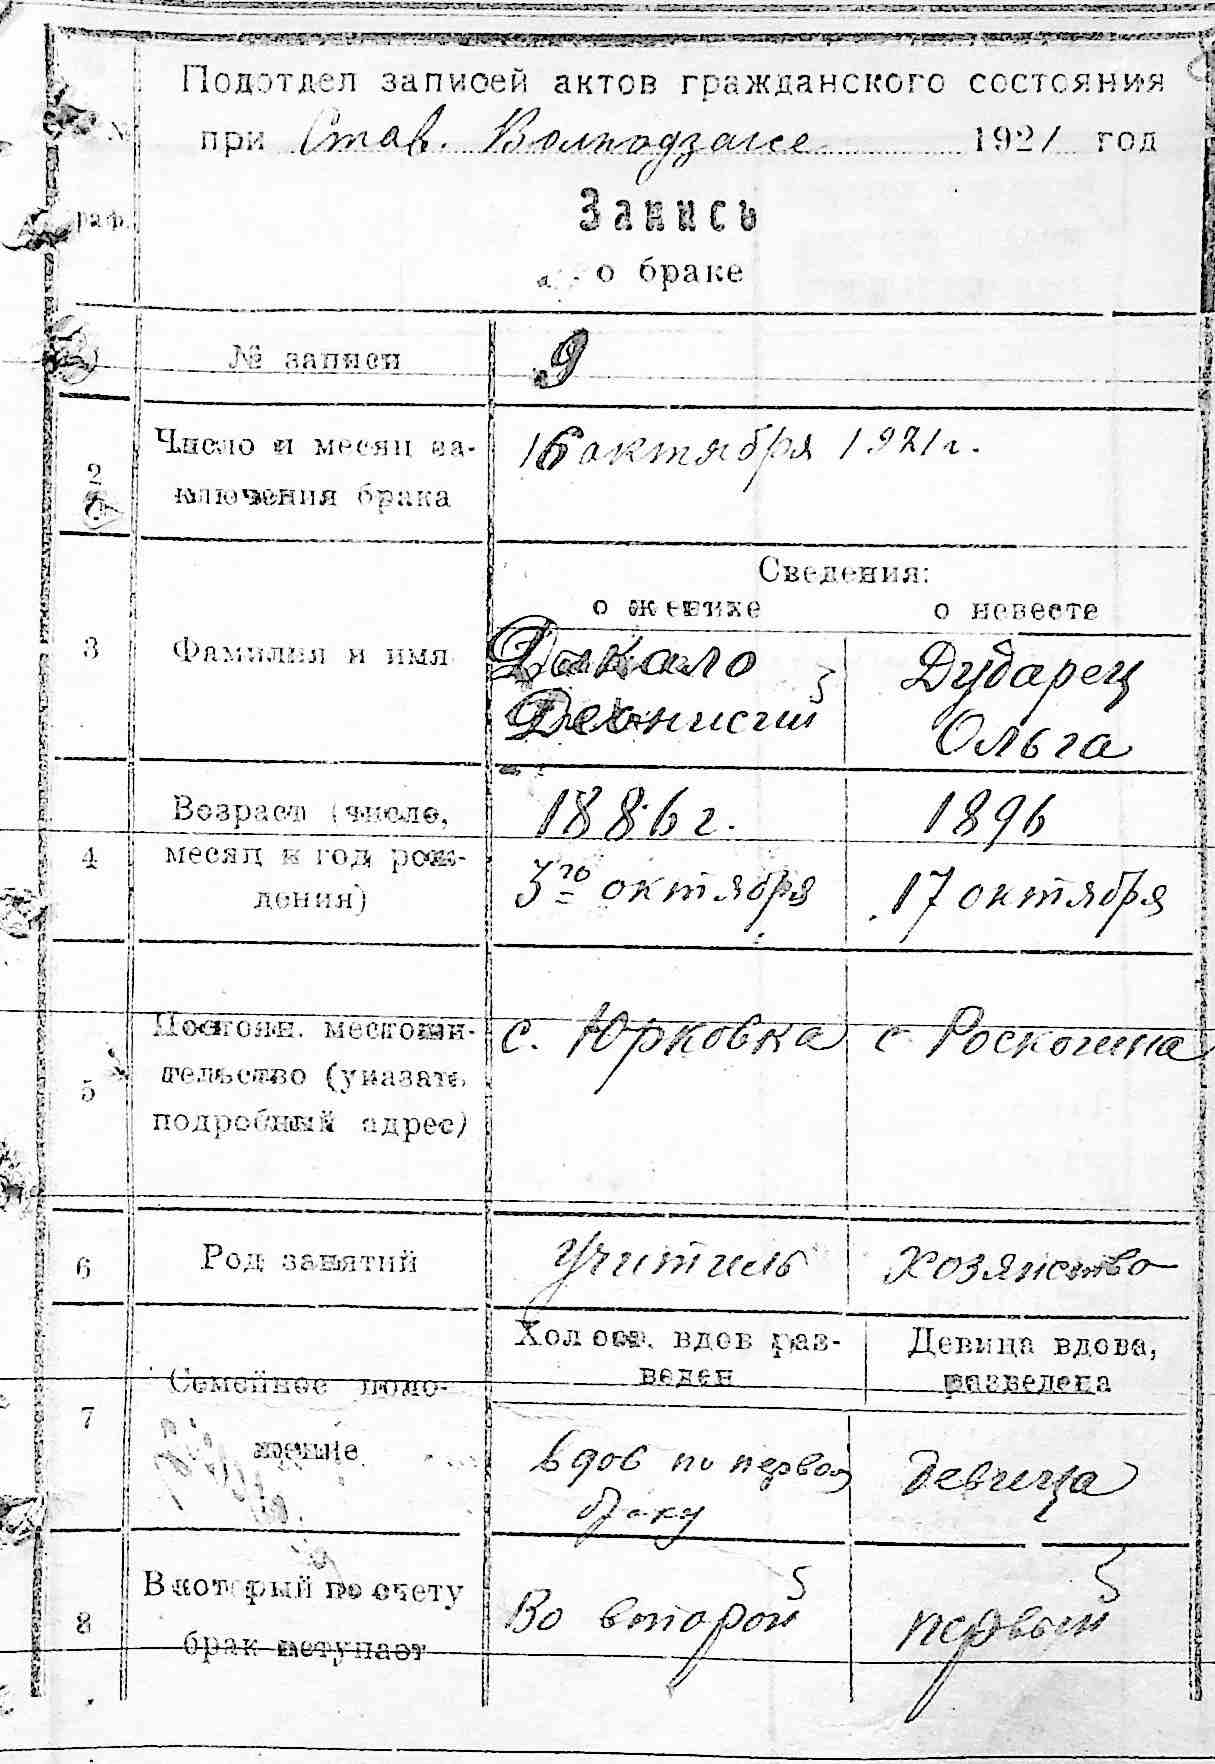 Подотдел записей актов гражданского состояния
при Став. Волподзагсе 1921 год
№
граф.
Запись
о браке
№ записи 9
2 Число и месяц за-
ключения брака
16 октября 1921 г.
Сведения:
о женихе о невесте
3 Фамилия и имя
Дикало Дударец
Дионисий Ольга
4 Возраст (число,
месяц и год рож-
дения)
1886 г. 1896
5го октября 17 октября
5 Постоян. местожи-
тельство (указать
подробный адрес)
с. Юрковка с.
6 Род занятий учитель хозяйство
7 Семейное поло-
жение
Холост. вдов раз-
веден
Девица вдова,
разведена
вдов по первому девица
браку
8 В который по счету
брак вступает
Во второй первый